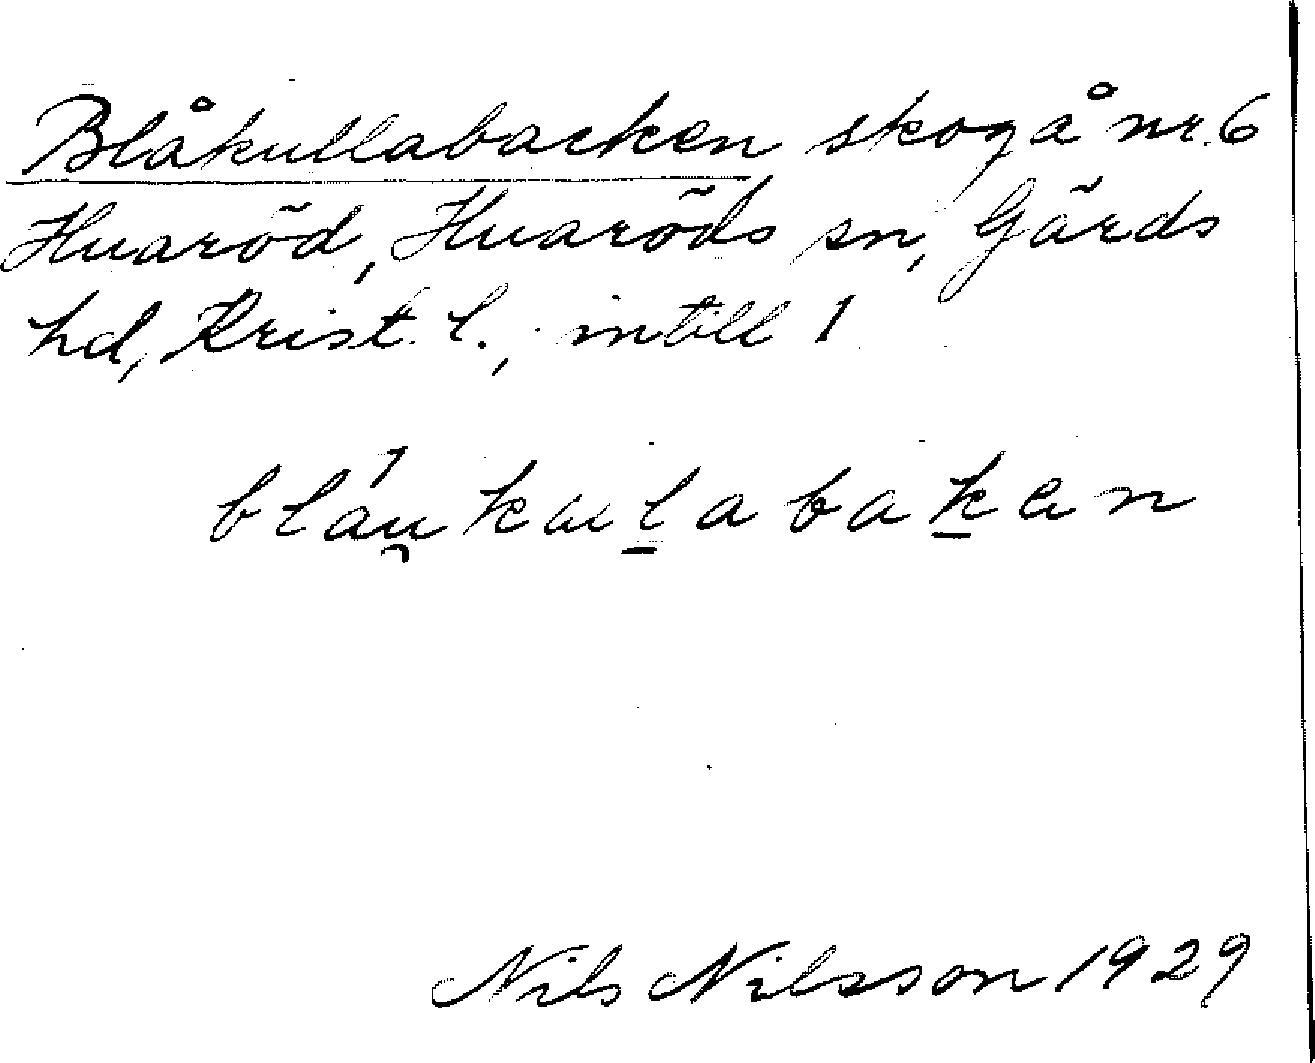 Blåkullabacken skog å nr. 6
Huaröd, Huaröds sn, Gärds
hd, Krist. l., intill 1
bláu̯kulabaken
Nils Nilsson 1929